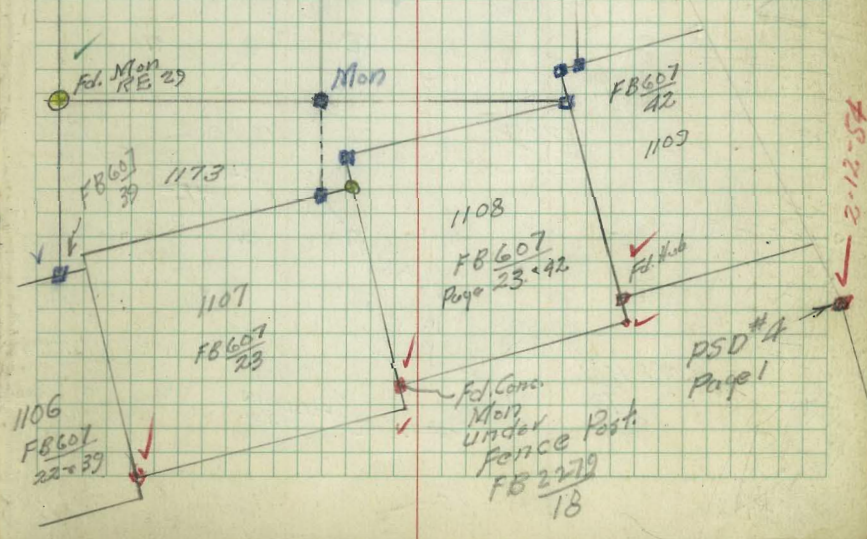 Fd. Mon
RE 29
Mon
FB 607
42
1109
FB 607
39
1173
2-12-54
1108
FB 607
Page 23 & 42
Fd. Hub
1107
FB 607
23
PSD #4
Page 1
1106
FB 607
22 & 39
Fd. Conc.
Mon
under
Fence Post.
FB 2279
18